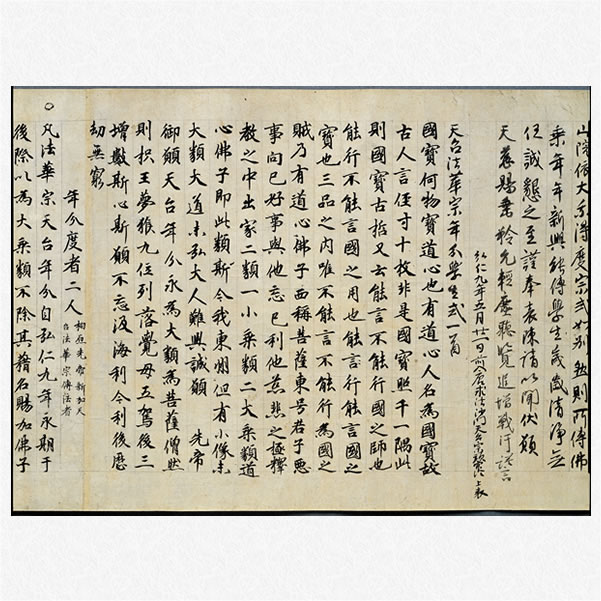 山院依大乗得度宗式如別然則所傳佛
乗年年新興能傳學生歳歳清淨無
任誠懇之至謹奉表陳請以聞伏願
天慈賜垂矜允輕塵聽覽追增戰汗謹言
弘仁九年五月廿一日前入唐求法沙門天台宗最澄上表
天台法華宗年分學生式一首
國寶何物寶道心也有道心人名為國寶故
古人言徑寸十枚非是國寶照千一隅此
則國寶古哲又云能言不能行國之師也
能行不能言國之用也能行能言國之
寶也三品之内唯不能言不能行為國之
賊乃有道心佛子西稱菩薩東号君子惡
事向己好事與他忘己利他慈悲之極釋
教之中出家二類一小乗類二大乗類道
心佛子即此類斯今我東州但有小像未
大類大道未弘大人難興誠願　先帝
御願天台年分永為大類為菩薩僧然
則枳王夢猴九位列落覺母五駕後三
增數斯心斯願不忘汲海利今利後歴
劫無窮
年分度者二人
柏原先帝新加天
台法華宗傳法者
○凡法華宗天台年分自弘仁九年永期于
後際以為大乗類不除其籍名賜加佛子